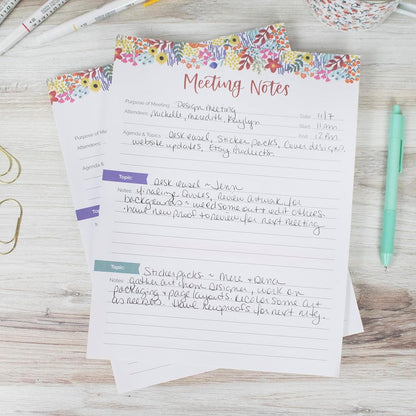 Meeting Notes
Purpose of Meeting: Design Meeting Date 11/7
Attendees: Michelle, Meredith, Kaylyn Start 11am
End 12pm
Agenda & Topics Desk easel, Sticker packs, Cover designs?
website updates, Etsy Production
Topic: Desk easel ~ Jenn
Notes: finalize Quotes, Review artwork for
backgrounds ~ need some art + edit others.
have new proof to review for next meeting
Topic: Sticker packs ~ Mere +
Notes: gather art from Designer, work on
packaging + page layouts. Recolor some art
as needed. Have new proofs for next mtg.
Attendees
Agenda &
Topic